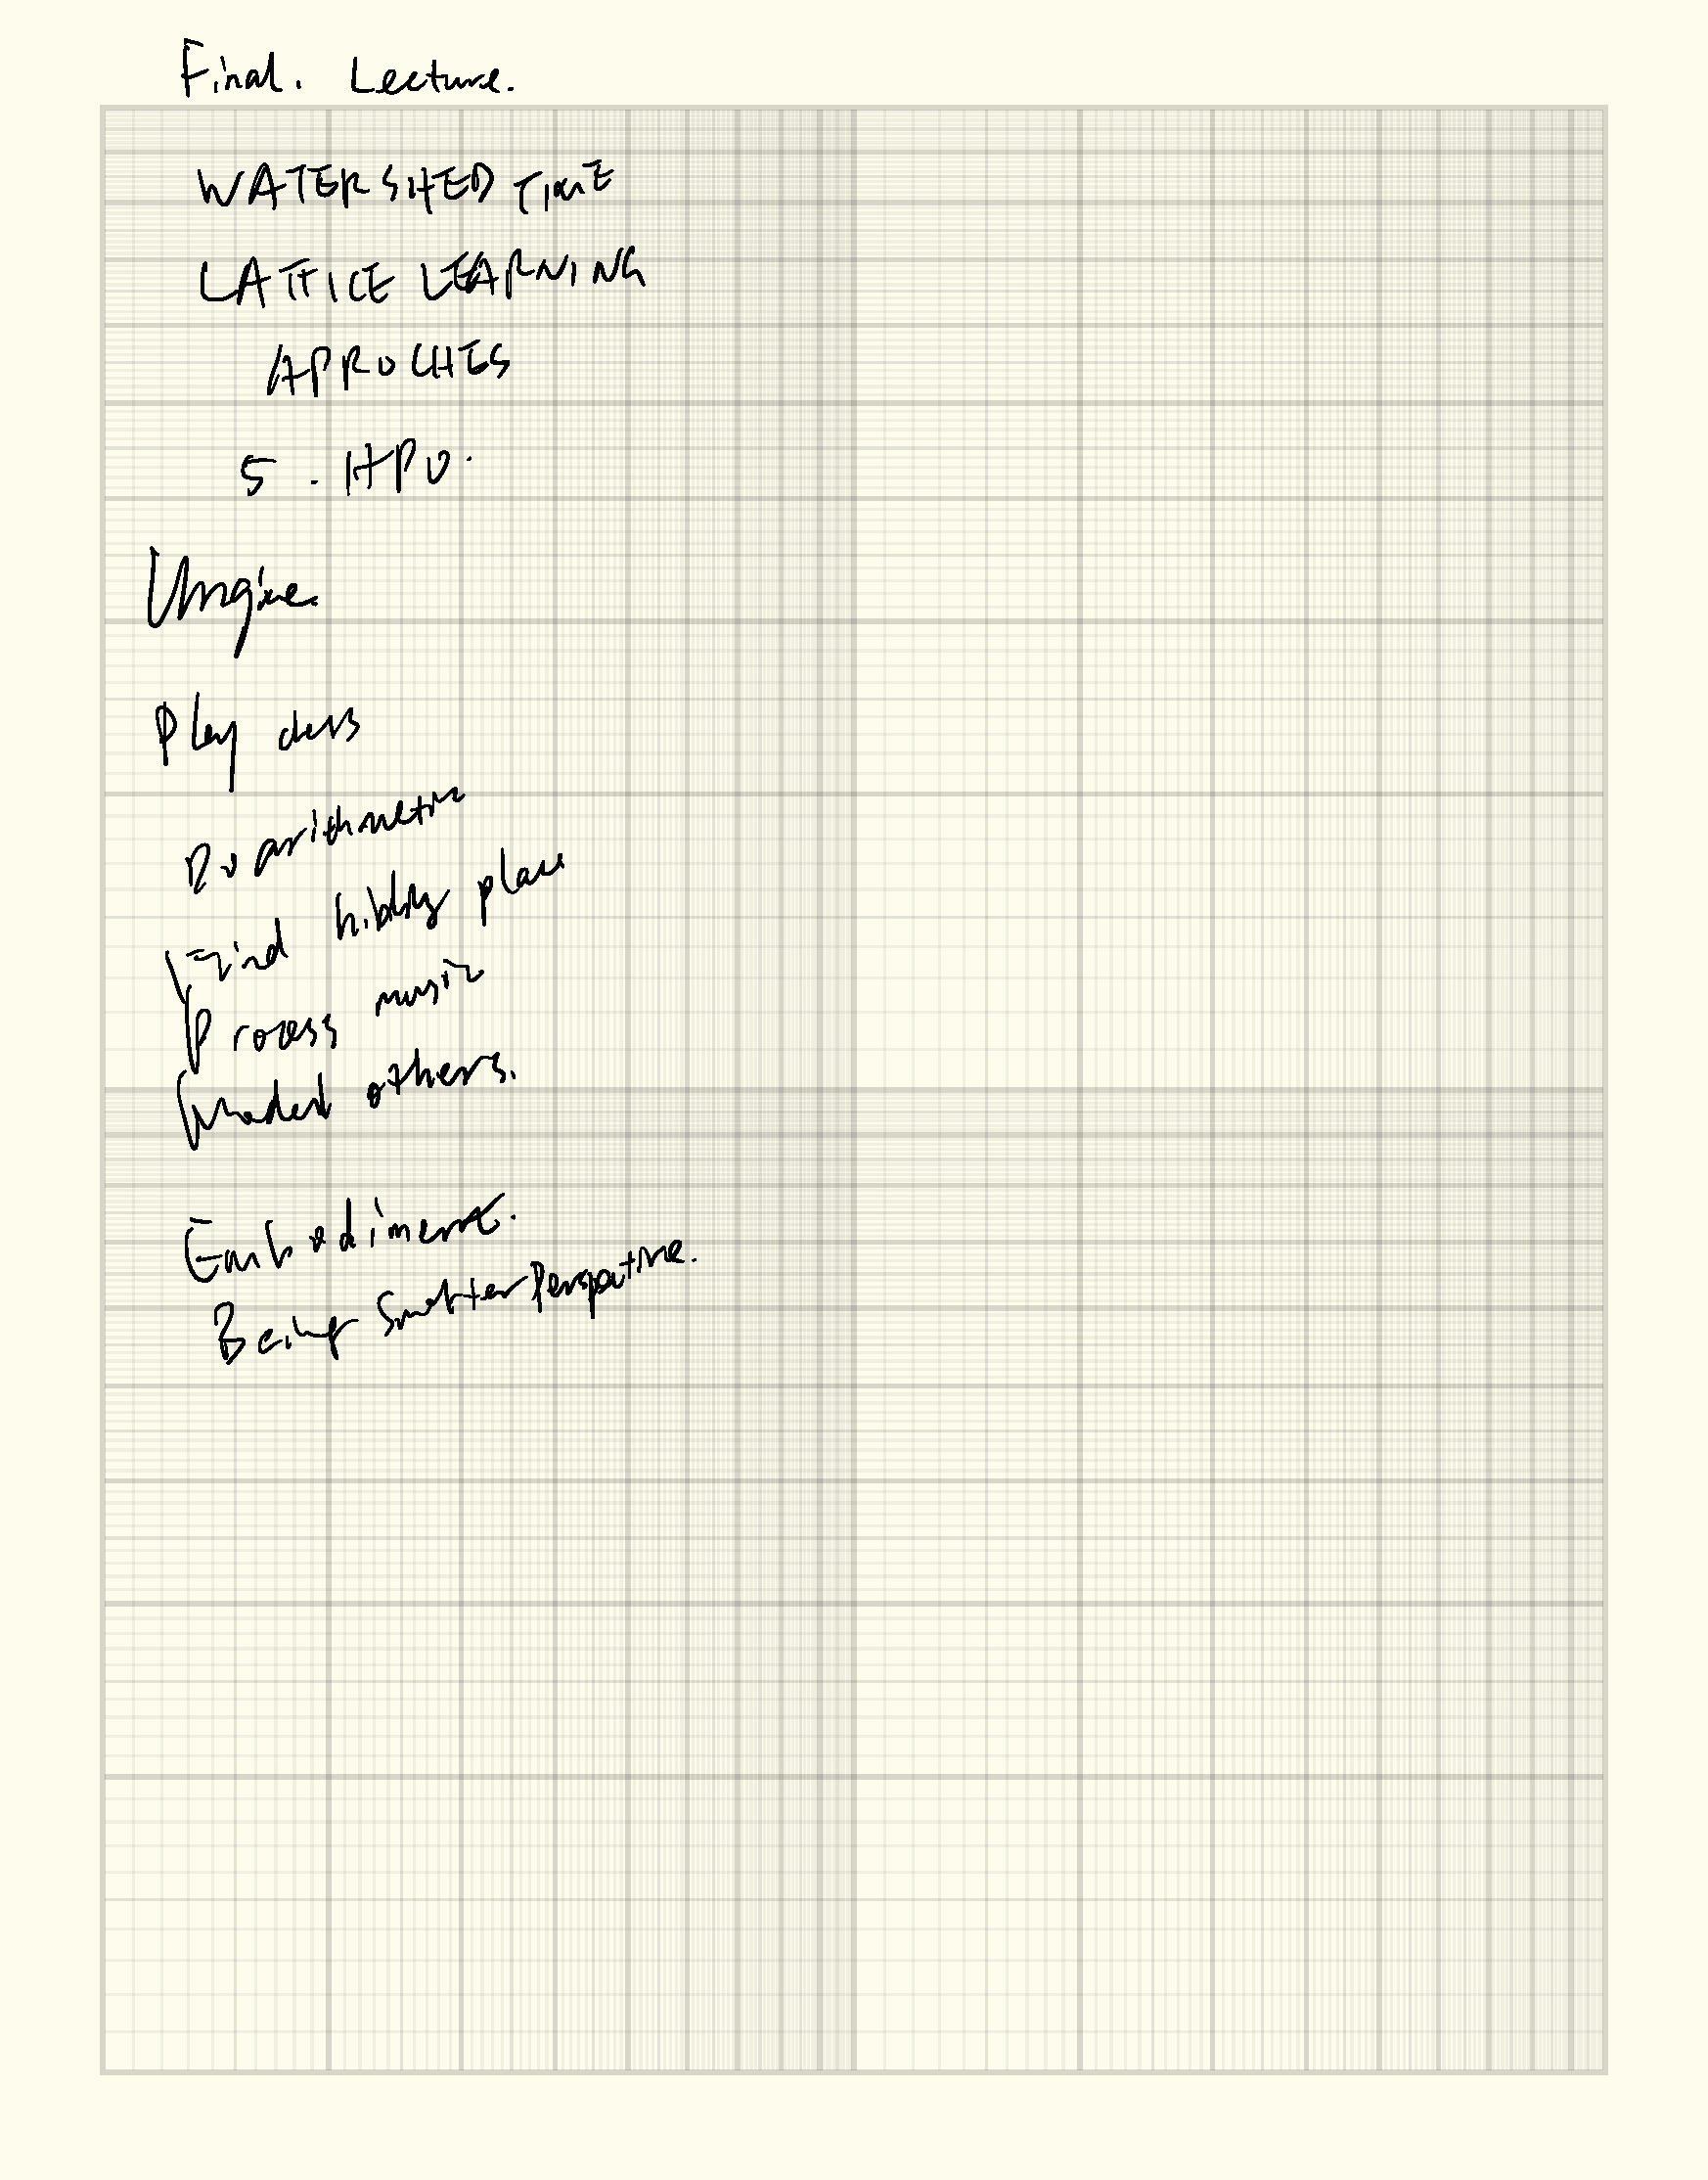 Final. Lecture.
WATERSHED TIME
LATTICE LEARNING
APROCHES
5. HPO.
Play chess
Do arithmetic
Find place
Process music
Model others.
Embodiment.
Being Smatter Perspective.